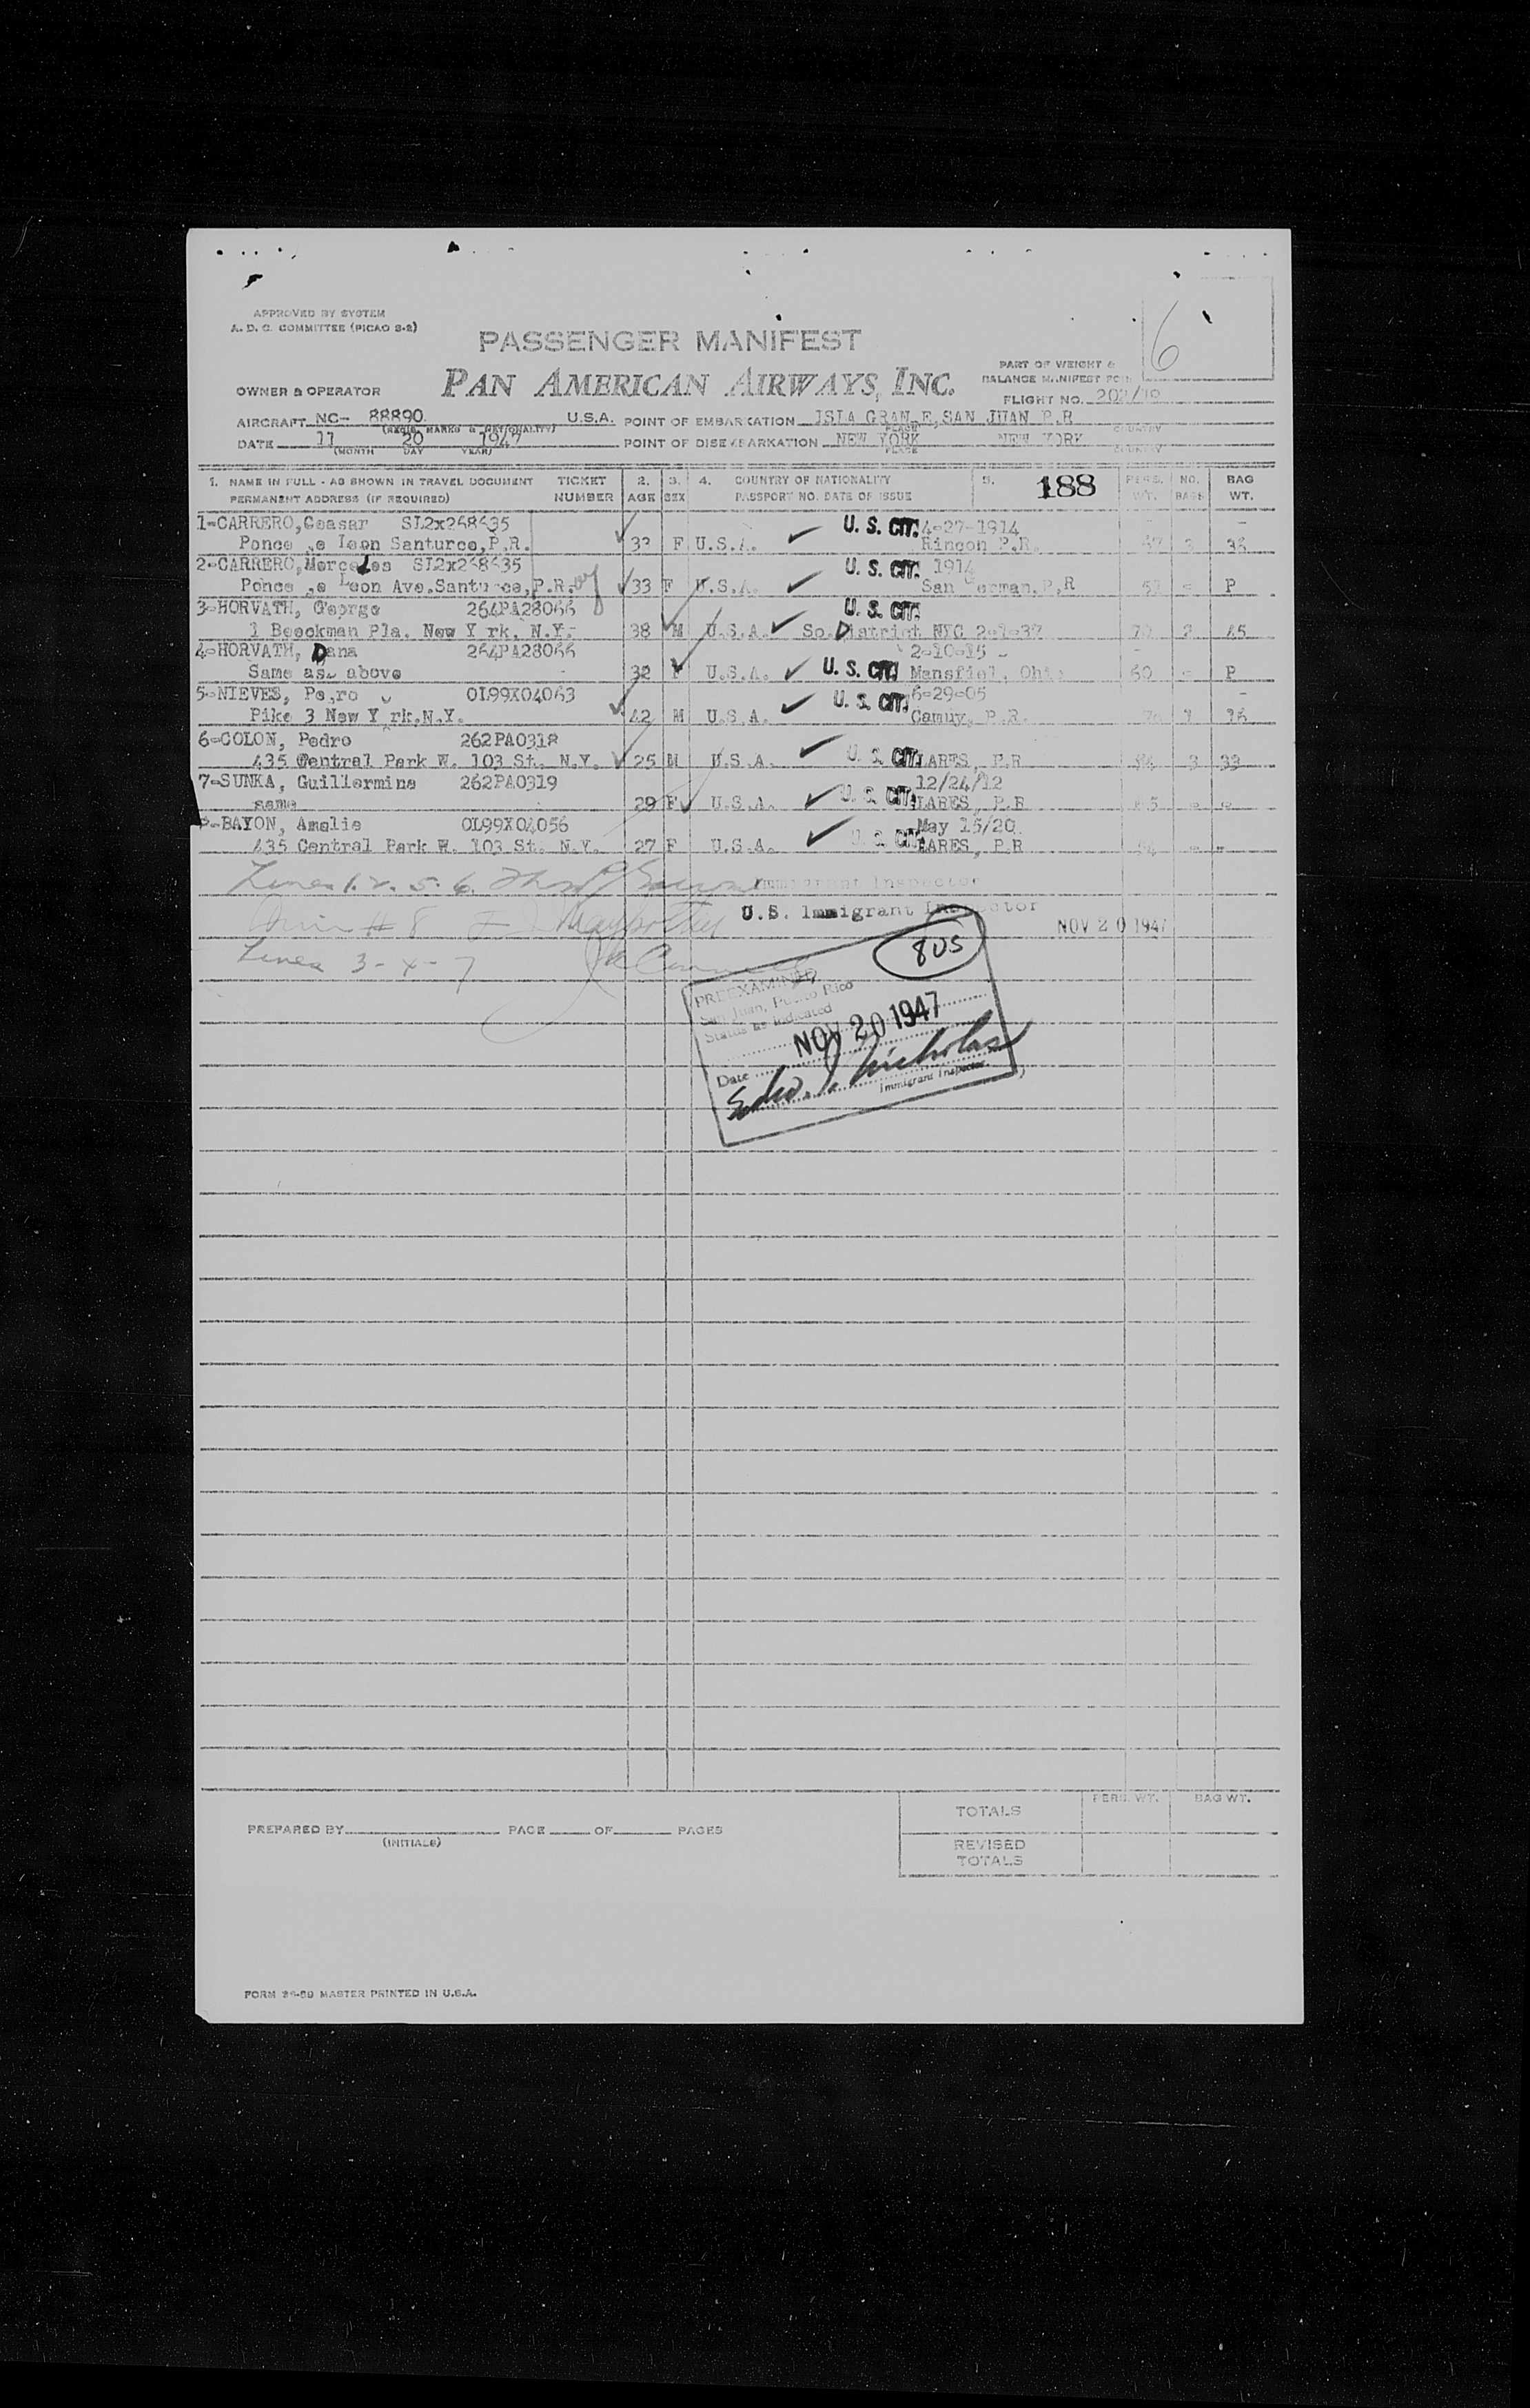 APPROVED BY SYSTEM
A. D. C. COMMITTEE (PICAO S-2)
6
PASSENGER MANIFEST
PAN AMERICAN AIRWAYS, INC.
PART OF WEIGHT &
BALANCE MANIFEST FORM
OWNER & OPERATOR
FLIGHT NO. 202/19
AIRCRAFT NC- 88890 U.S.A. POINT OF EMBARKATION ISLA GRAN E, SAN JUAN P.R
(REGIS. MARKS & NATIONALITY) PLACE COUNTRY
DATE 11 20 1947 POINT OF DISEMBARKATION NEW YORK NEW YORK
(MONTH DAY YEAR) PLACE COUNTRY
1. NAME IN FULL - AS SHOWN IN TRAVEL DOCUMENT TICKET 2. 3. 4. COUNTRY OF NATIONALITY 5. 188 PERS. NO. BAG
PERMANENT ADDRESS (IF REQUIRED) NUMBER AGE SEX PASSPORT NO. DATE OF ISSUE WT. BAGS WT.
1-CARRERO, Ceasar U. S. CIT. 4-27-1914
Ponce e Leon Santurce, P.R. 33 F U.S.A. Rincon P.R.
2-CARRERO, Mercedes U. S. CIT. 1914
Ponce e Leon Ave. Santurce, P.R. 33 F U.S.A. San German, P.R P
3-HORVATH, George 264PA28066 U. S. CIT.
1 Beeckman Pla. New Y rk, N.Y. 38 M U.S.A. So. District NYC 45
4-HORVATH, Dana 264PA28066 2-10-15
Same as above 32 F U.S.A. U. S. CIT. Mansfiel, Ohio 60 - P
5-NIEVES, Pe ro 0L99X04063 U. S. CIT. 6-29-05
Pike 3 New Y rk, N.Y. 42 M U.S.A. Camuy, P.R.
6-COLON, Pedro 262PA0318
435 Central Park W. 103 St. N.Y. 25 M U.S.A. U. S. CIT. LARES, P.R
7-SUNKA, Guillermina 262PA0319 12/24/12
same 29 F U.S.A. U. S. CIT. LARES, P.R
8-BAYON, Amelia 0L99X04056 May 15/20
435 Central Park W. 103 St. N.Y. 27 F U.S.A. U. S. CIT. LARES, P.R
Lines 1. 2. 5. 6. Immigrant Inspector
# 8 U.S. Immigrant Inspector NOV 20 1947
Lines 3 - 4 - 7
805
PREEXAMINED
San Juan, Puerto Rico
Status as indicated
NOV 20 1947
Date
Edw. J. Nicholas
Immigrant Inspector
PREPARED BY PAGE OF PAGES
(INITIALS)
PERS. WT. BAG WT.
TOTALS
REVISED
TOTALS
FORM MASTER PRINTED IN U.S.A.